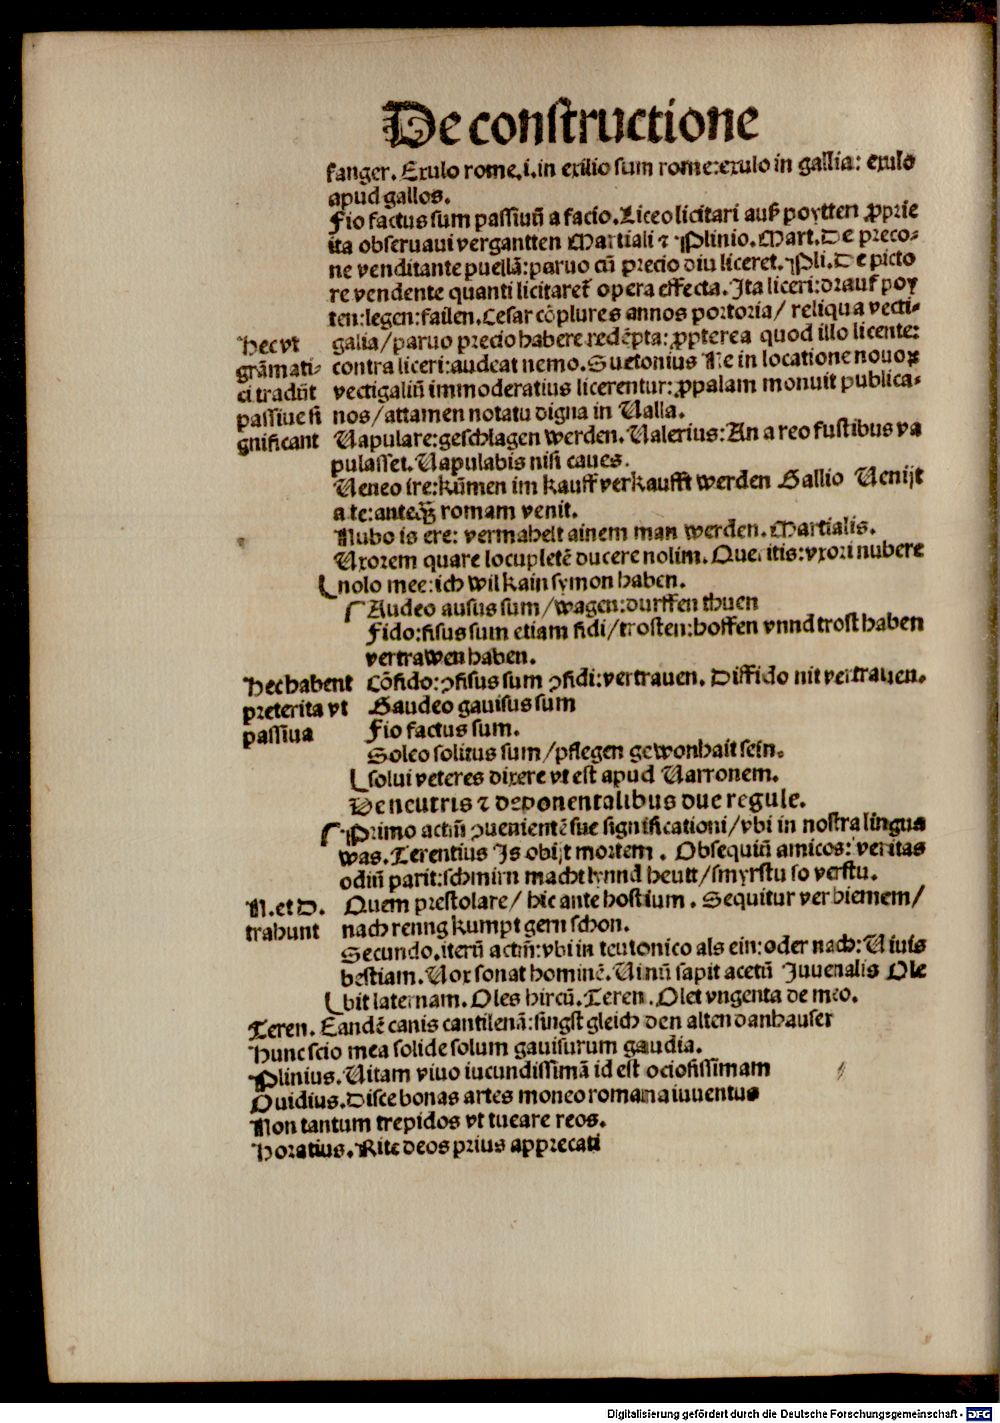 De constructione
fanger. Exulo rome.i.in exilio sum rome:exulo in gallia: exulo
apud gallos.
Fio factus sum passiuū a facio. Liceo licitari auß poytten ꝓprie
ita obseruaui vergantten Martiali ⁊ Plinio. Mart. De preco⸗
ne venditante puellā:paruo cū precio diu liceret. Pli. De picto
re vendente quanti licitaret̄ opera effecta. Ita liceri:drauf poy
ten:legen:failen. Cesar cōplures annos portoria/ reliqua vecti⸗
galia/paruo precio habere redēpta: ꝓpterea quod illo licente:
contra liceri:audeat nemo. Suetonius Ne in locatione nouoꝝ
vectigaliū immoderatius licerentur: ꝓpalam monuit publica⸗
nos/attamen notatu digna in Ualla.
Hec vt
grāmati⸗
ci tradūt
passiue si
gnificant
Uapulare:geschlagen werden. Ualerius:An a reo fustibus va
pulasset. Uapulabis nisi caues.
Ueneo ire:kūmen im kauff verkaufft werden Gallio Uenijt
a te:anteq̄ȝ romam venit.
Nubo is ere: vermahelt ainem man werden. Martialis.
Uxorem quare locupletē ducere nolim. Queritis:vxori nubere
nolo mee:ich wil kain symon haben.
Audeo ausus sum/wagen:durffen thuen
Fido:fisus sum etiam fidi/trosten:hoffen vnnd trost haben
vertrawen haben.
Hec habent
preterita vt
passiua
Cōfido:ↄfisus sum ↄfidi:vertrauen. Diffido nit vertrauen.
Gaudeo gauisus sum
Fio factus sum.
Soleo solitus sum/pflegen gewonhait sein.
solui veteres dixere vt est apud Uarronem.
De neutris ⁊ deponentalibus due regule.
Primo actm̄ ↄuenientē sue significationi/vbi in nostra lingua
was. Terentius Is obijt mortem. Obsequiū amicos: veritas
odiū parit:schmirn macht frynnd heutt/smyrstu so verstu.
N. et D.
trahunt
Quem prestolare/ hic ante hostium. Sequitur ver hiemem/
nach renng kumpt gern schon.
Secundo.iterū actm̄:vbi in teutonico als ein:oder nach:Uiuis
bestiam. Uox sonat hominē. Uinū sapit acetū Iuuenalis Ole
bit laternam. Oles hircū. Teren. Olet vngenta de meo.
Teren. Eandē canis cantilenā:singst gleich den alten danhauser
Hunc scio mea solide solum gauisurum gaudia.
Plinius. Uitam viuo iucundissimā id est ociosissimam
Ouidius. Disce bonas artes moneo romana iuuentus
Non tantum trepidos vt tueare reos.
Horatius. Rite deos prius apprecati
Digitalisierung gefördert durch die Deutsche Forschungsgemeinschaft - DFG